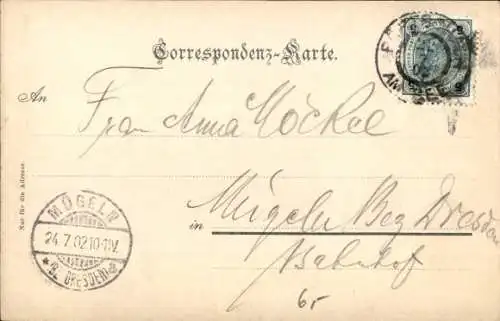 Correspondenz-Karte.
An
Frau Anna Möckel
in Mügeln Bez Dresden
Bahnhof
65
Nur für die Adresse.
MÜGELN
24.7.02 10-11V.
*(BZ. DRESDEN)a
AM SEE